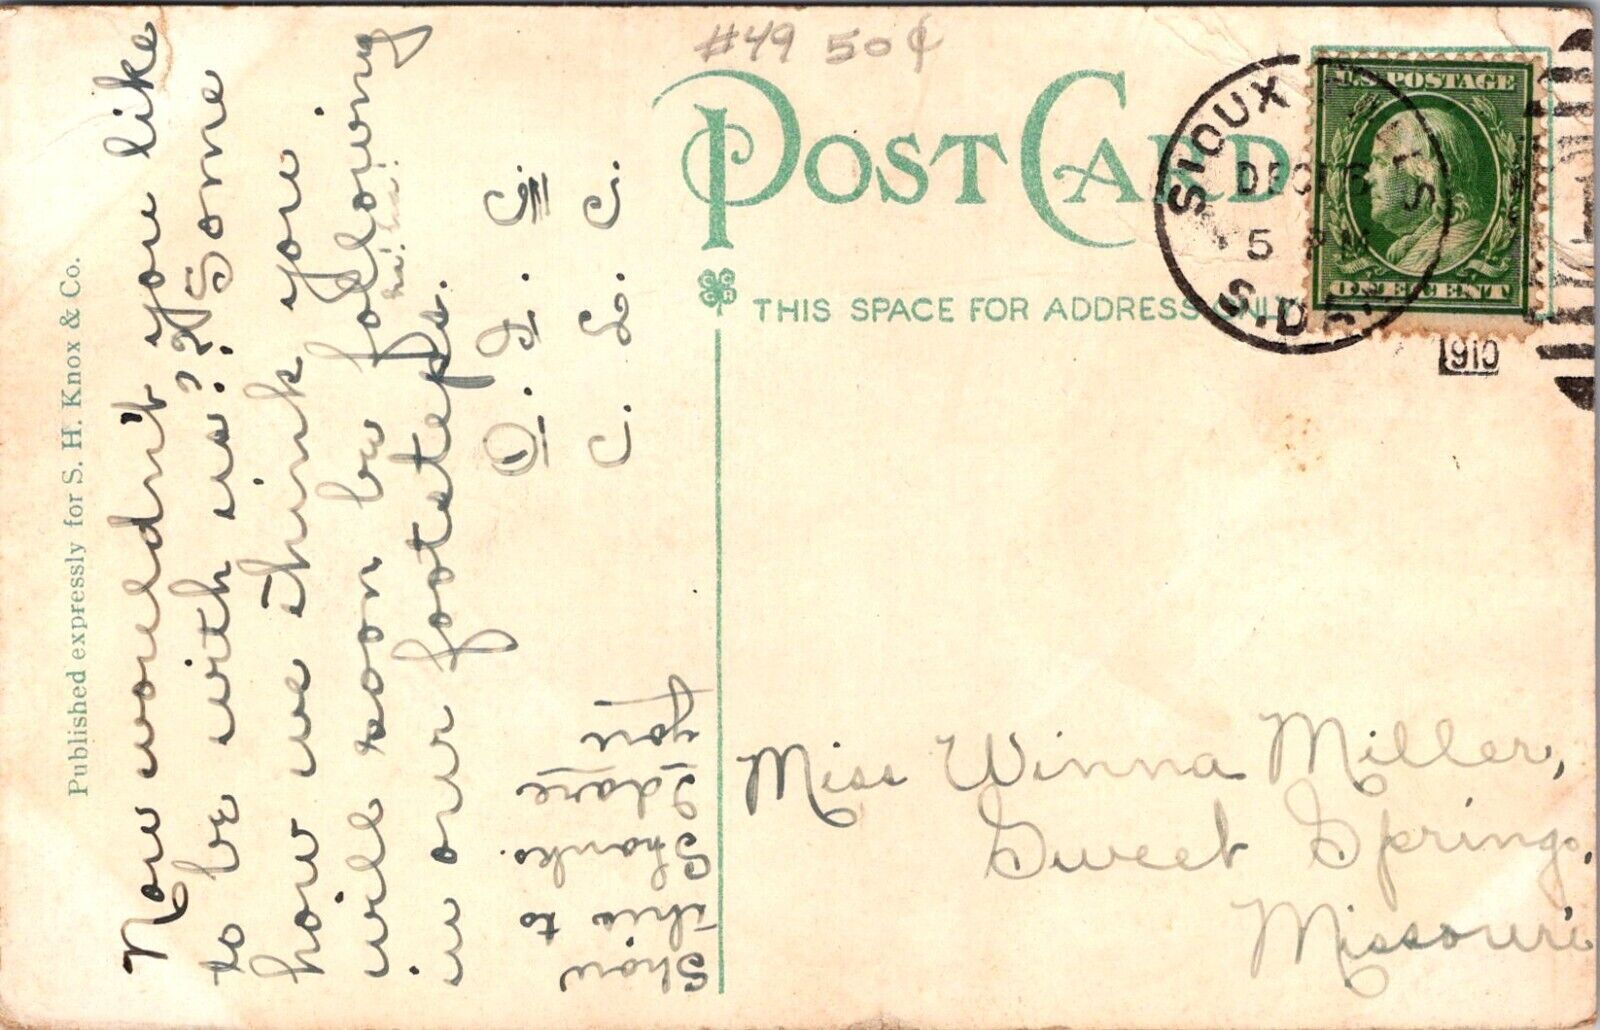 #49 50¢
POST CARD
THIS SPACE FOR ADDRESS ONLY
SIOUX FALLS
DEC
5 PM
S.DAK.
1910
U.S. POSTAGE
ONE CENT
Published expressly for S. H. Knox & Co.
Now wouldn't you like
to be with us?? Some
how we think you
will soon be following
ha! ha! ha!
in our footsteps.
C. L. C.
Show this to
I dare you
Miss Winna Miller,
Sweet Springs,
Missouri